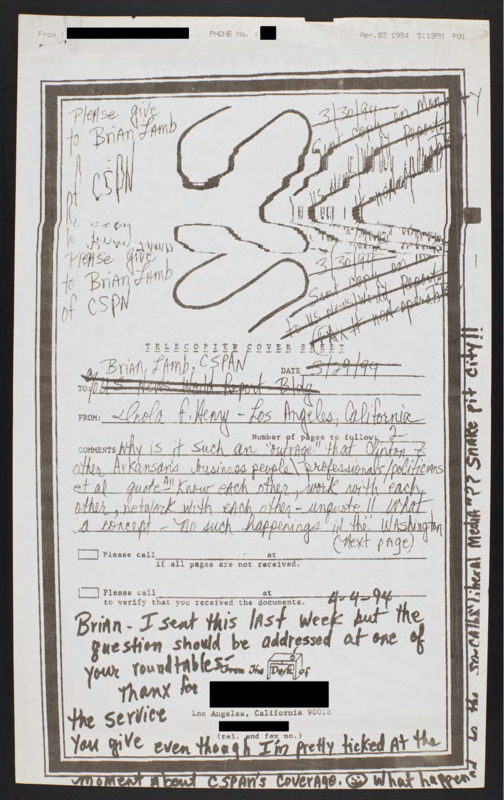 From : PHONE No. : Apr.03 1994 5:19PM P01
Please give
to Brian Lamb
of CSPN
Please give
to Brian Lamb
of CSPN
3/30/94
3/30/94
TELECOPIER COVER SHEET
Brian Lamb, CSPAN
DATE 3/29/94
TO: US News World Report Bldg
FROM: F. Henry - Los Angeles, California
Number of pages to follow 2
COMMENTS Why is it such an "outrage" that Clinton &
other Arkansans business people\professionals/politicians
et al quote All know each other, work with each
other, network with each other - unquote! What
a concept - "No such happenings in the" Washington
(next page)
Please call at
if all pages are not received.
Please call at
to verify that you received the documents. 4-4-94
Brian - I sent this last week but the
question should be addressed at one of
your roundtables
From The Desk of
Thanx for
the service
Los Angeles, California 90018
(tel. and fax no.)
You give even though I'm pretty ticked at the
moment about CSPAN's coverage. What happened to the so-called "liberal Media"?? Snake pit city!!